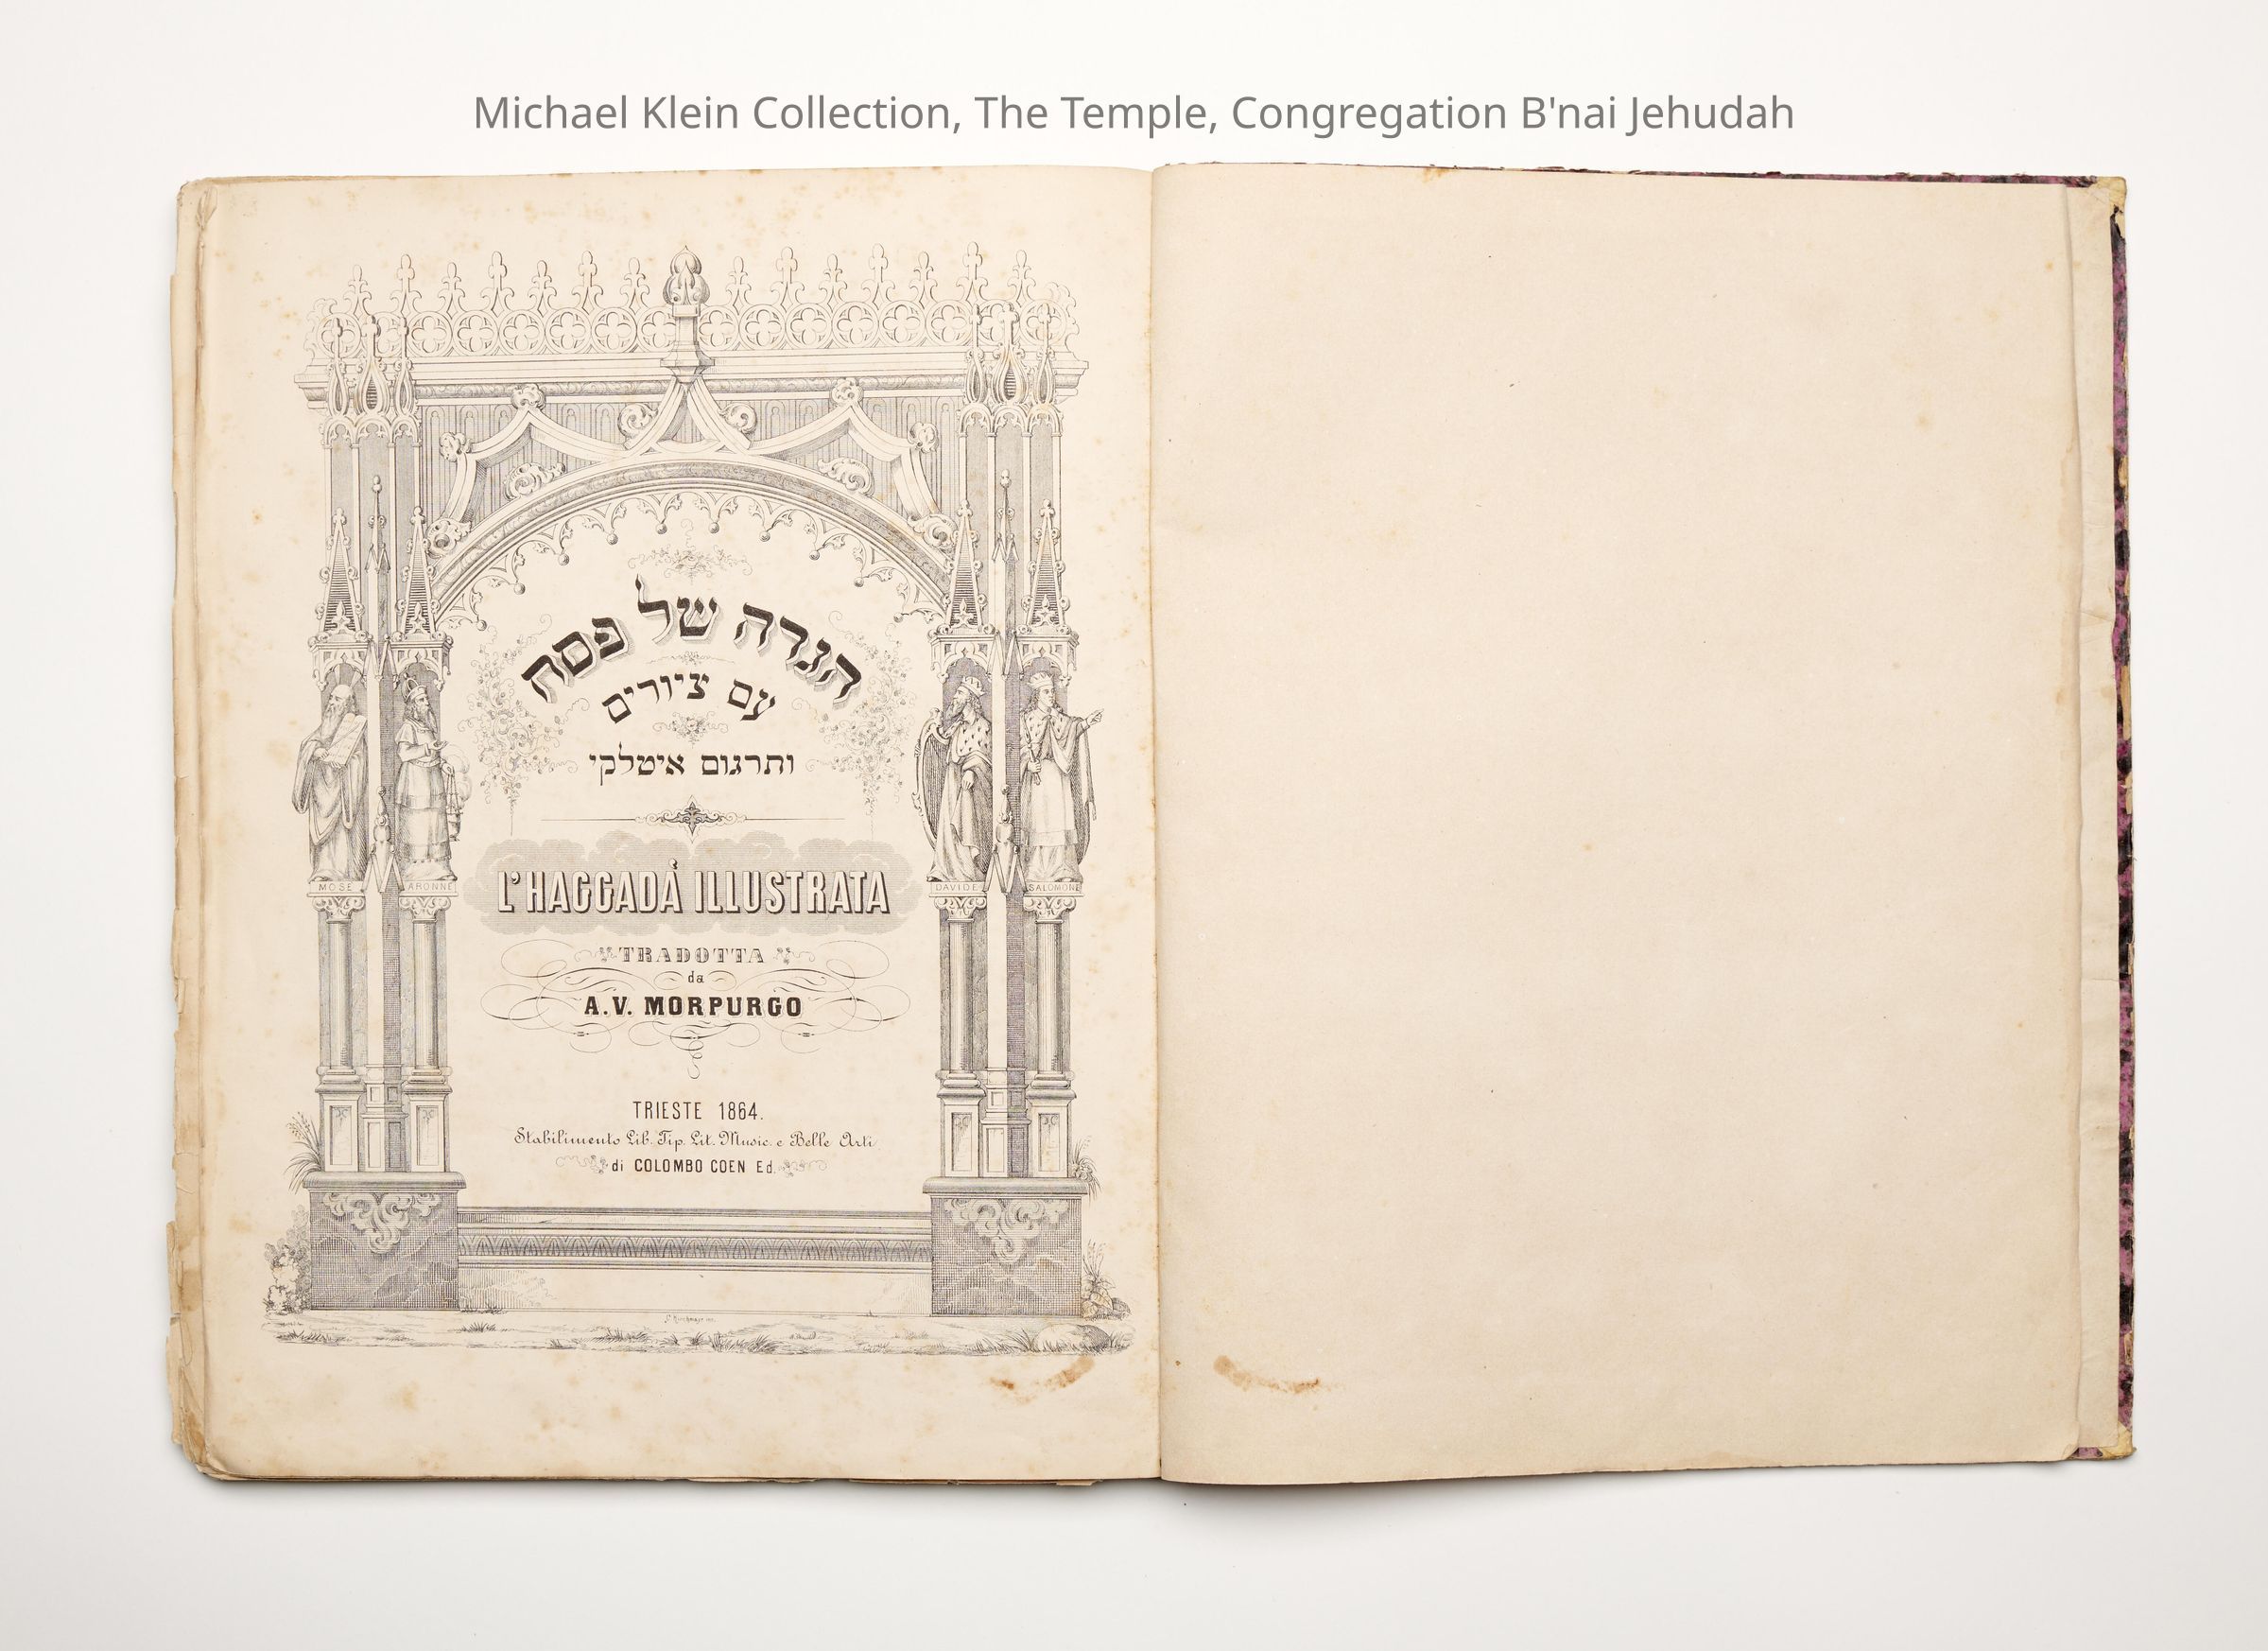 Michael Klein Collection, The Temple, Congregation B'nai Jehudah
הגדה של פסח
עם ציורים
ותרגום איטלקי
L'HAGGADÀ ILLUSTRATA
TRADOTTA
da
A.V. MORPURGO
TRIESTE 1864.
Stabilimento Lib. Tip. Lit. Music. e Belle Arti
di COLOMBO COEN Ed.
MOSE
ARONNE
DAVIDE
SALOMONE